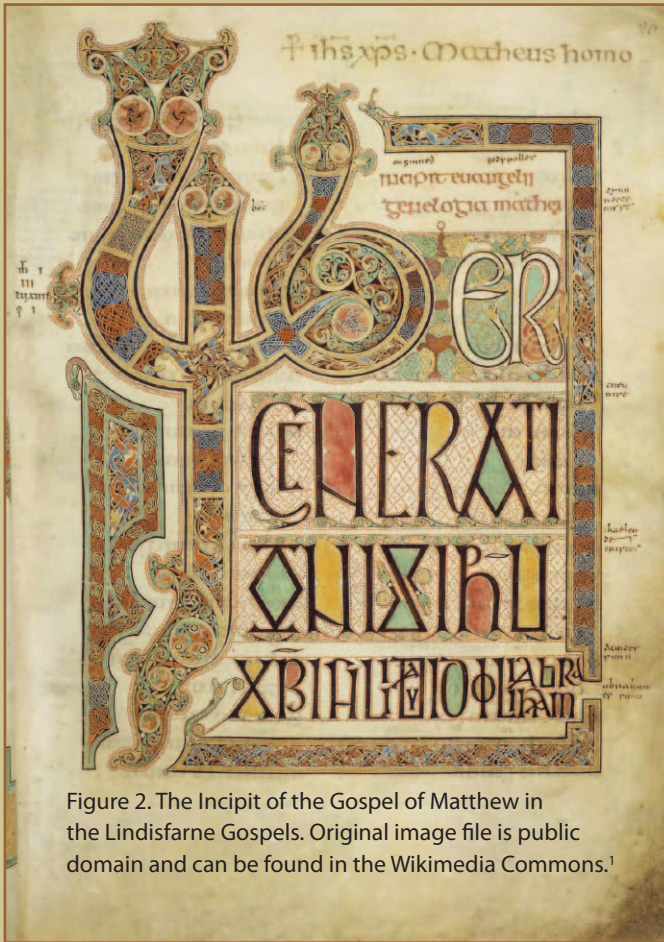 + ihs xps · Matheus homo
incipit euangelii
genelogia mathei
LIBER
GENERATI
ONIS IHU
XPI FILII DAVID FILII ABRAHAM
Figure 2. The Incipit of the Gospel of Matthew in
the Lindisfarne Gospels. Original image file is public
domain and can be found in the Wikimedia Commons.¹